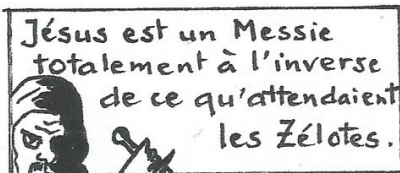 Jésus est un Messie
totalement à l'inverse
de ce qu'attendaient
les Zélotes.